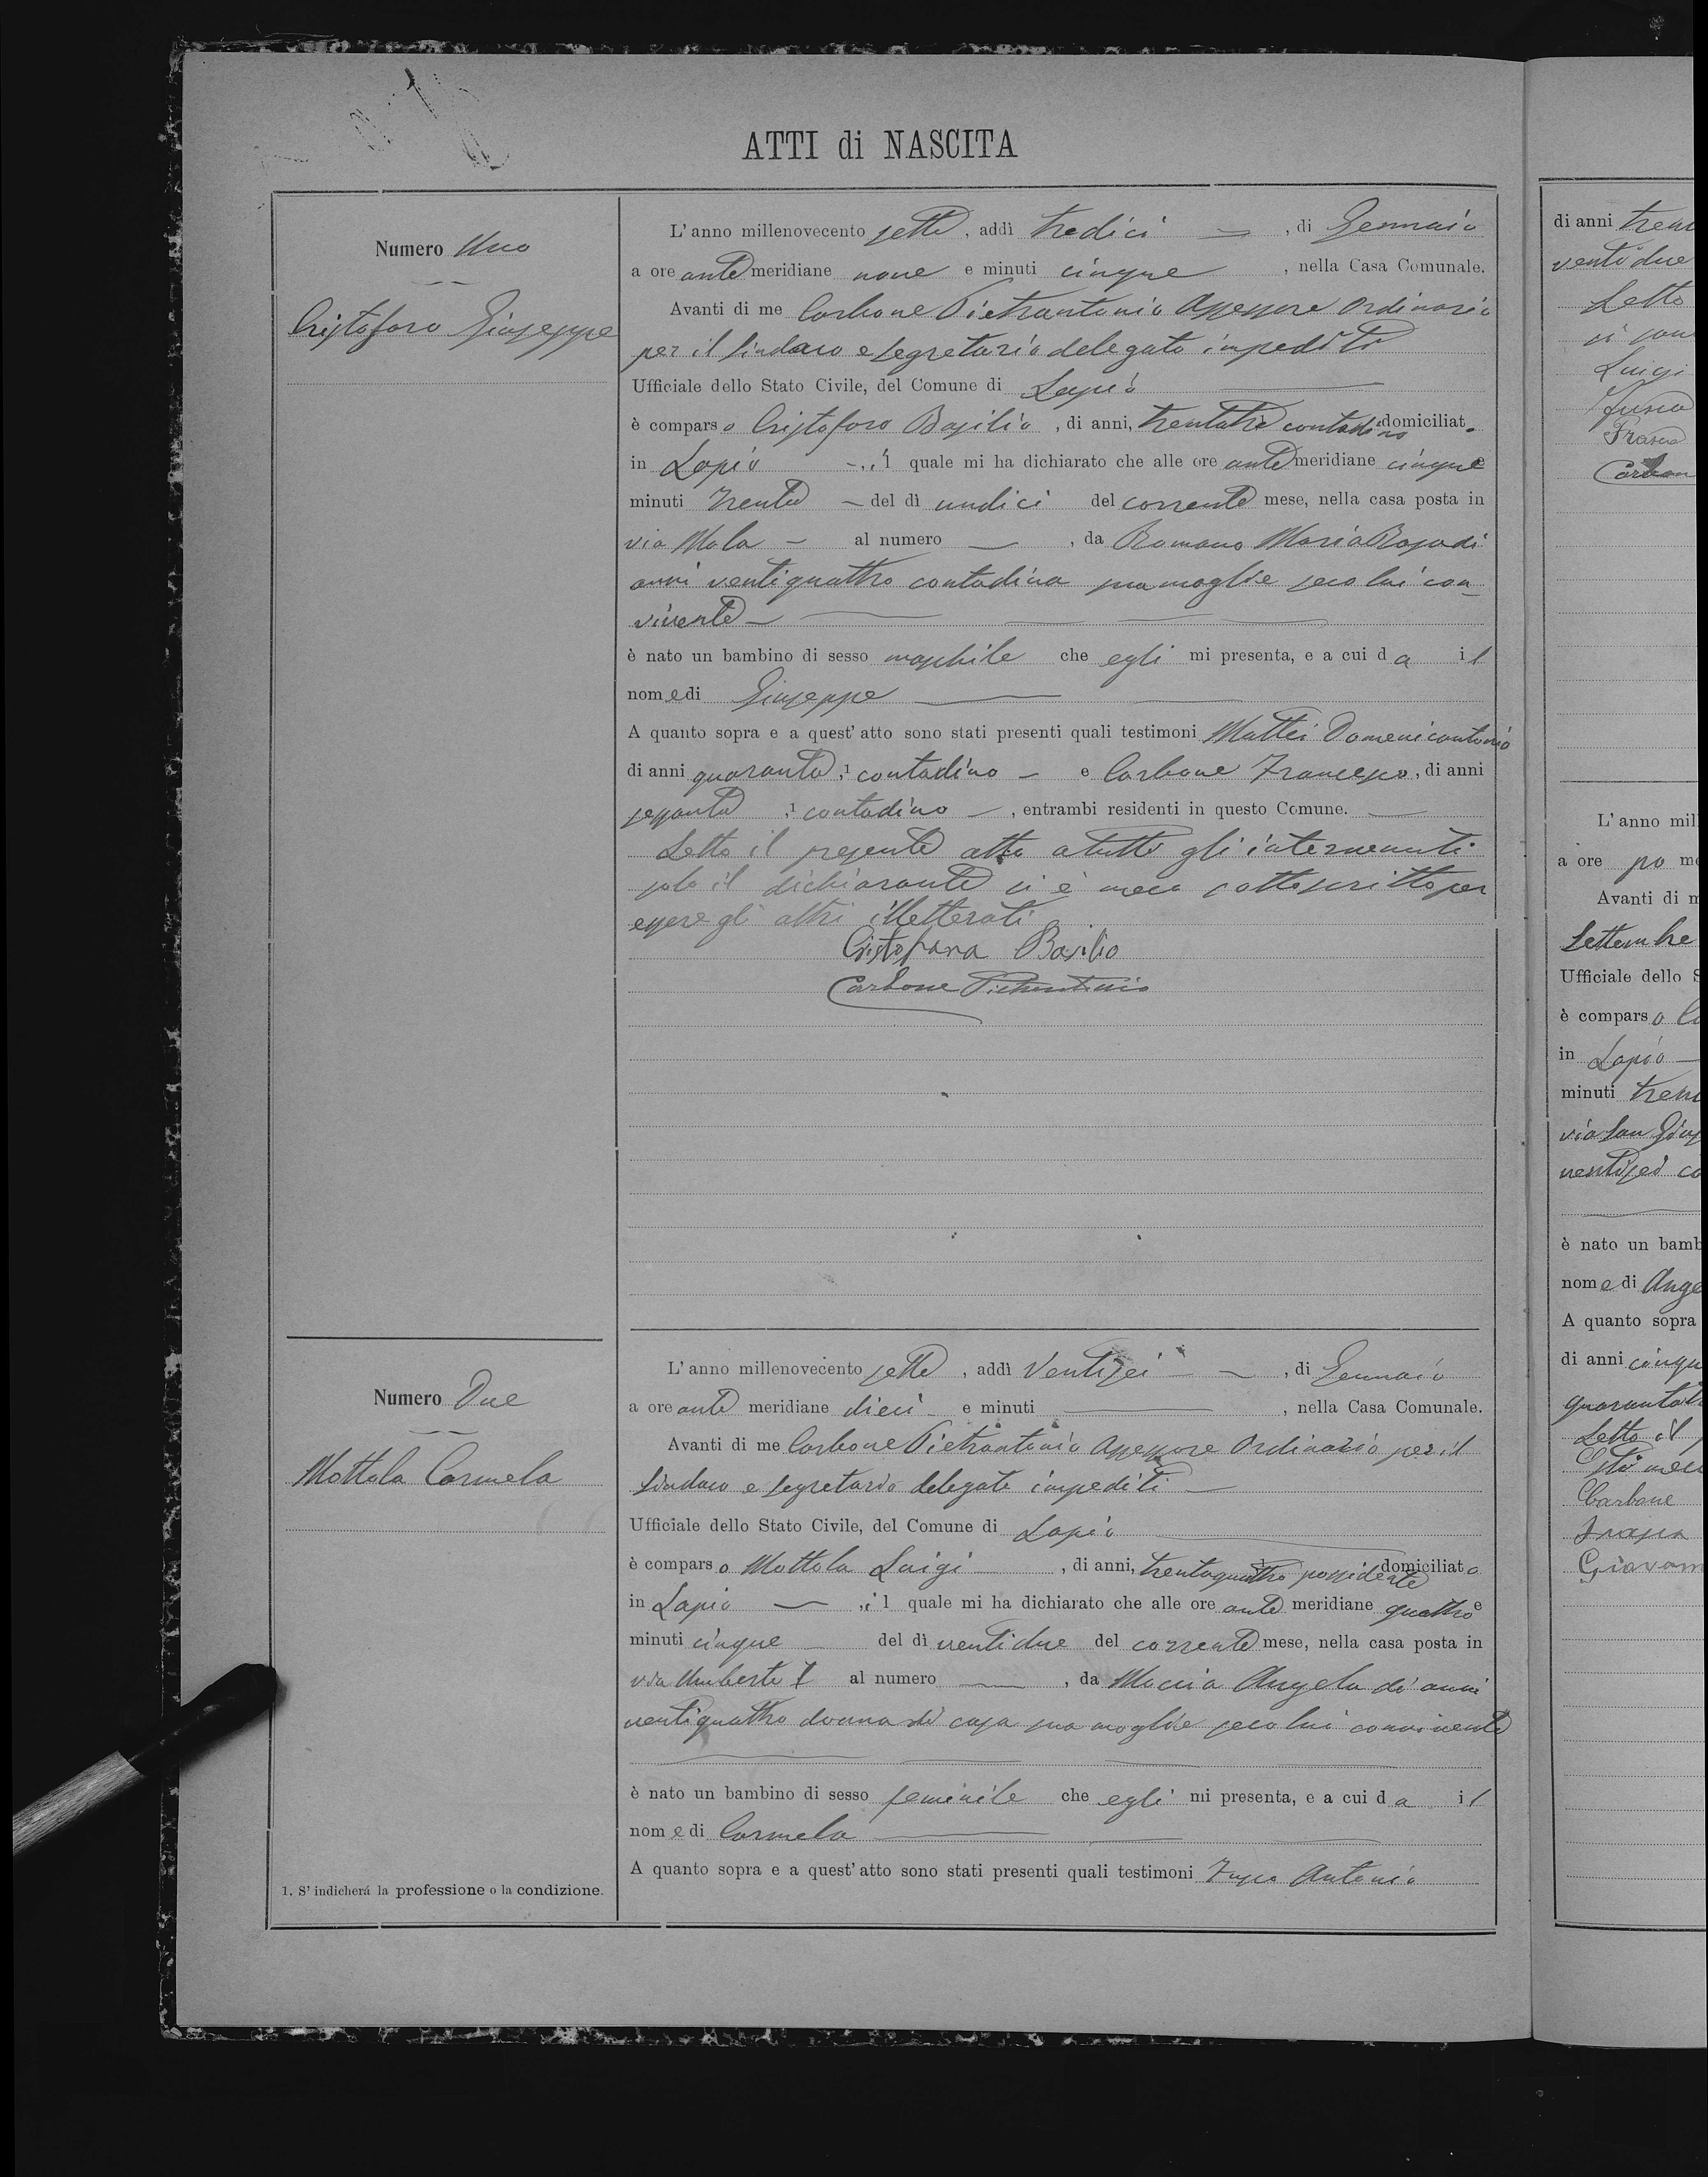 ATTI di NASCITA
Numero Uno
Cristofaro Giuseppe
L'anno millenovecento sette, addì tredici, di Gennaio
a ore ante meridiane nove e minuti cinque, nella Casa Comunale.
Avanti di me Carbone Pietrantonio Assessore Ordinario
per il Sindaco e Segretario delegato impediti
Ufficiale dello Stato Civile, del Comune di Lapio
è comparso Cristofaro Basilio, di anni, trentatrè contadino domiciliato
in Lapio -, il quale mi ha dichiarato che alle ore ante meridiane cinque e
minuti trenta - del dì undici del corrente mese, nella casa posta in
via Mala - al numero —, da Romano Maria Rosa di
anni ventiquattro contadina sua moglie seco lui con-
vivente -
è nato un bambino di sesso maschile che egli mi presenta, e a cui da il
nome di Giuseppe
A quanto sopra e a quest'atto sono stati presenti quali testimoni Mattei Domenicantonio
di anni quaranta, 1 contadino - e Carbone Francesco, di anni
sessanta, 1 contadino -, entrambi residenti in questo Comune.
Letto il presente atto a tutti gli intervenuti
solo il dichiarante si è meco sottoscritto per
essere gli altri illetterati
Cristofaro Basilio
Carbone Pietrantonio
Numero Due
Mottola Carmela
L'anno millenovecento sette, addì Ventisei -, di Gennaio
a ore ante meridiane dieci e minuti —, nella Casa Comunale.
Avanti di me Carbone Pietrantonio Assessore Ordinario per il
Sindaco e Segretario delegato impediti -
Ufficiale dello Stato Civile, del Comune di Lapio
è comparso Mottola Luigi -, di anni, trentaquattro possidente domiciliato
in Lapio -, il quale mi ha dichiarato che alle ore ante meridiane quattro e
minuti cinque - del dì ventidue del corrente mese, nella casa posta in
via Umberto I al numero —, da Maccia Angela di anni
ventiquattro donna di casa sua moglie seco lui convivente
è nato un bambino di sesso feminile che egli mi presenta, e a cui da il
nome di Carmela
A quanto sopra e a quest'atto sono stati presenti quali testimoni Fusco Antonio
1. S'indicherá la professione o la condizione.
di anni tren
ventidue
Letto
si son
Luigi
Carbon
L'anno mil
a ore po me
Avanti di m
Settembre
Ufficiale dello S
è comparso
in Lapio
minuti tren
via San Gius
ventisei co
è nato un bamb
nome di Ange
A quanto sopra
di anni cinqu
quarantat
Letto il
Carbone
Giovan